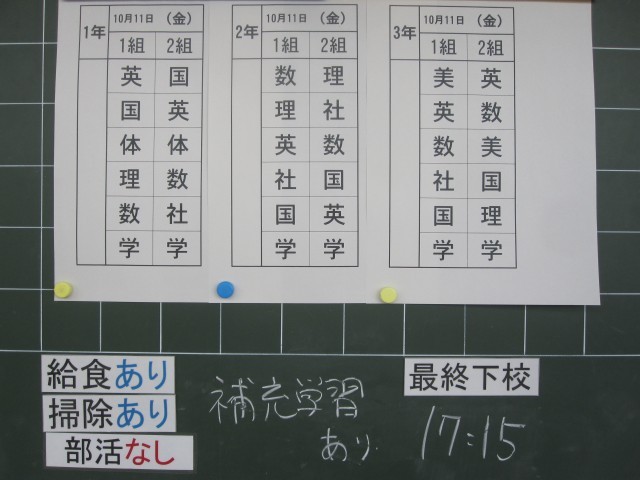 1年 10月11日 (金)
1組 2組
英 国
国 英
体 体
理 数
数 社
学 学
2年 10月11日 (金)
1組 2組
数 理
理 社
英 数
社 国
国 英
学 学
3年 10月11日 (金)
1組 2組
美 英
英 数
数 美
社 国
国 理
学 学
給食あり
掃除あり
部活なし
補充学習
あり
最終下校
17:15